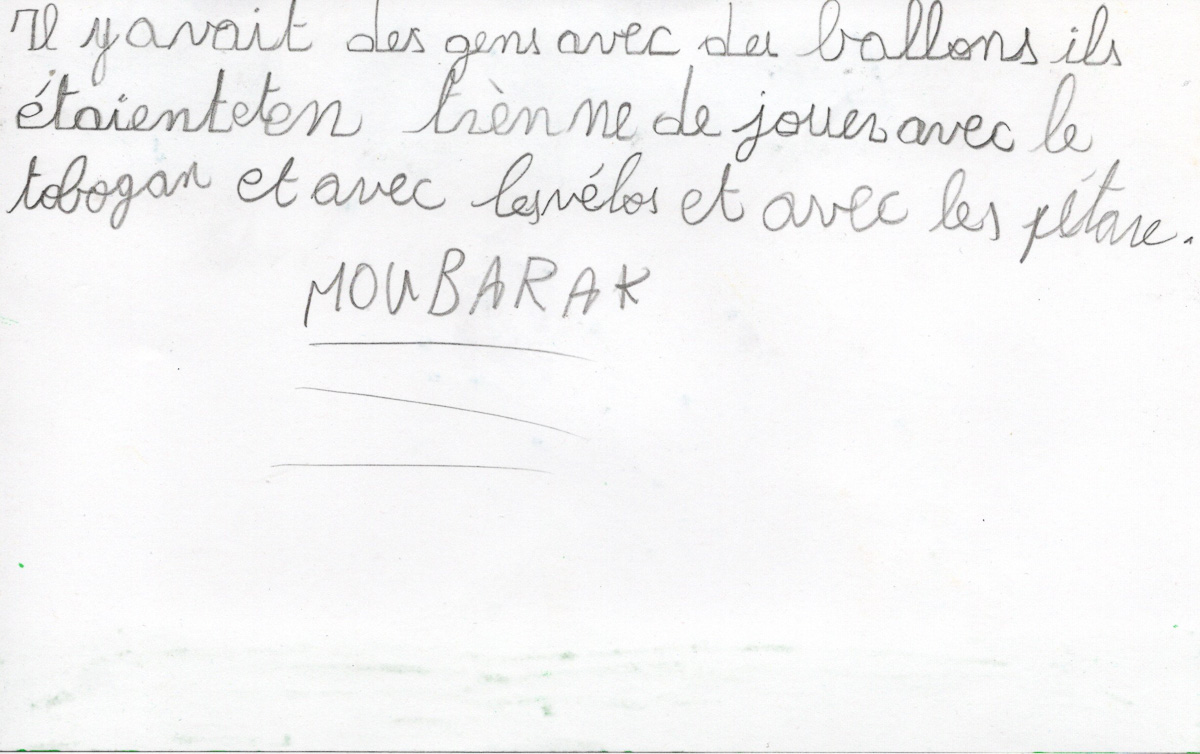 Il y avait des gens avec des ballons ils
étaienteten trènne de jouer avec le
tobogan et avec lesvélos et avec les pétare.
MOUBARAK